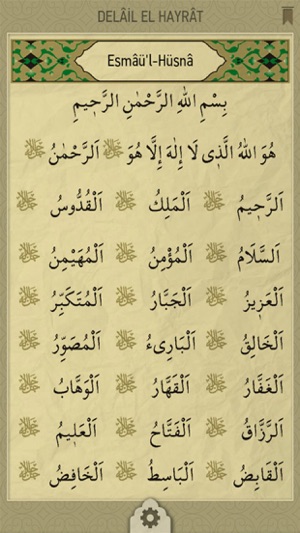 DELÂİL EL HAYRÂT
Esmâü'l-Hüsnâ
بِسْمِ اللهِ الرَّحْمٰنِ الرَّحٖيمِ
هُوَ اللهُ الَّذٖى لَا إِلٰهَ إِلَّا هُوَ ﷻ اَلرَّحْمٰنُ ﷻ
اَلرَّحٖيمُ ﷻ اَلْمَلِكُ ﷻ اَلْقُدُّوسُ ﷻ
اَلسَّلَامُ ﷻ اَلْمُؤْمِنُ ﷻ اَلْمُهَيْمِنُ ﷻ
اَلْعَزٖيزُ ﷻ اَلْجَبَّارُ ﷻ اَلْمُتَكَبِّرُ ﷻ
اَلْخَالِقُ ﷻ اَلْبَارِىءُ ﷻ اَلْمُصَوِّرُ ﷻ
اَلْغَفَّارُ ﷻ اَلْقَهَّارُ ﷻ اَلْوَهَّابُ ﷻ
اَلرَّزَّاقُ ﷻ اَلْفَتَّاحُ ﷻ اَلْعَلٖيمُ ﷻ
اَلْقَابِضُ ﷻ اَلْبَاسِطُ ﷻ اَلْخَافِضُ ﷻ